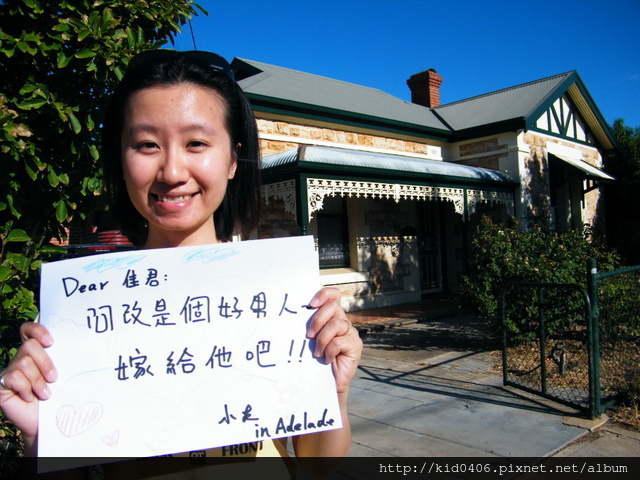 Dear 佳君:
阿改是個好男人~
嫁給他吧!!
in Adelade
FRONT
http://kid0406.pixnet.net/album